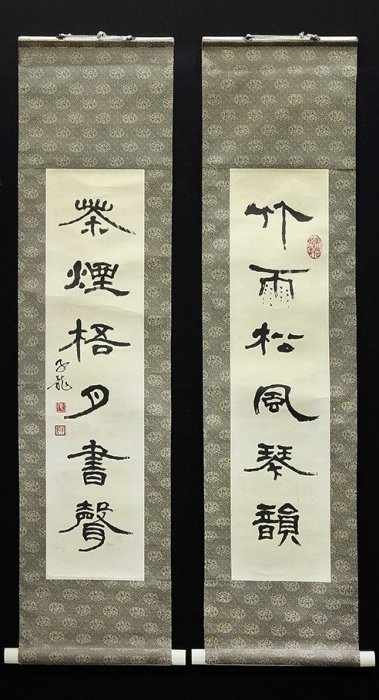 竹雨松風琴韻
茶煙梧月書聲
子龍